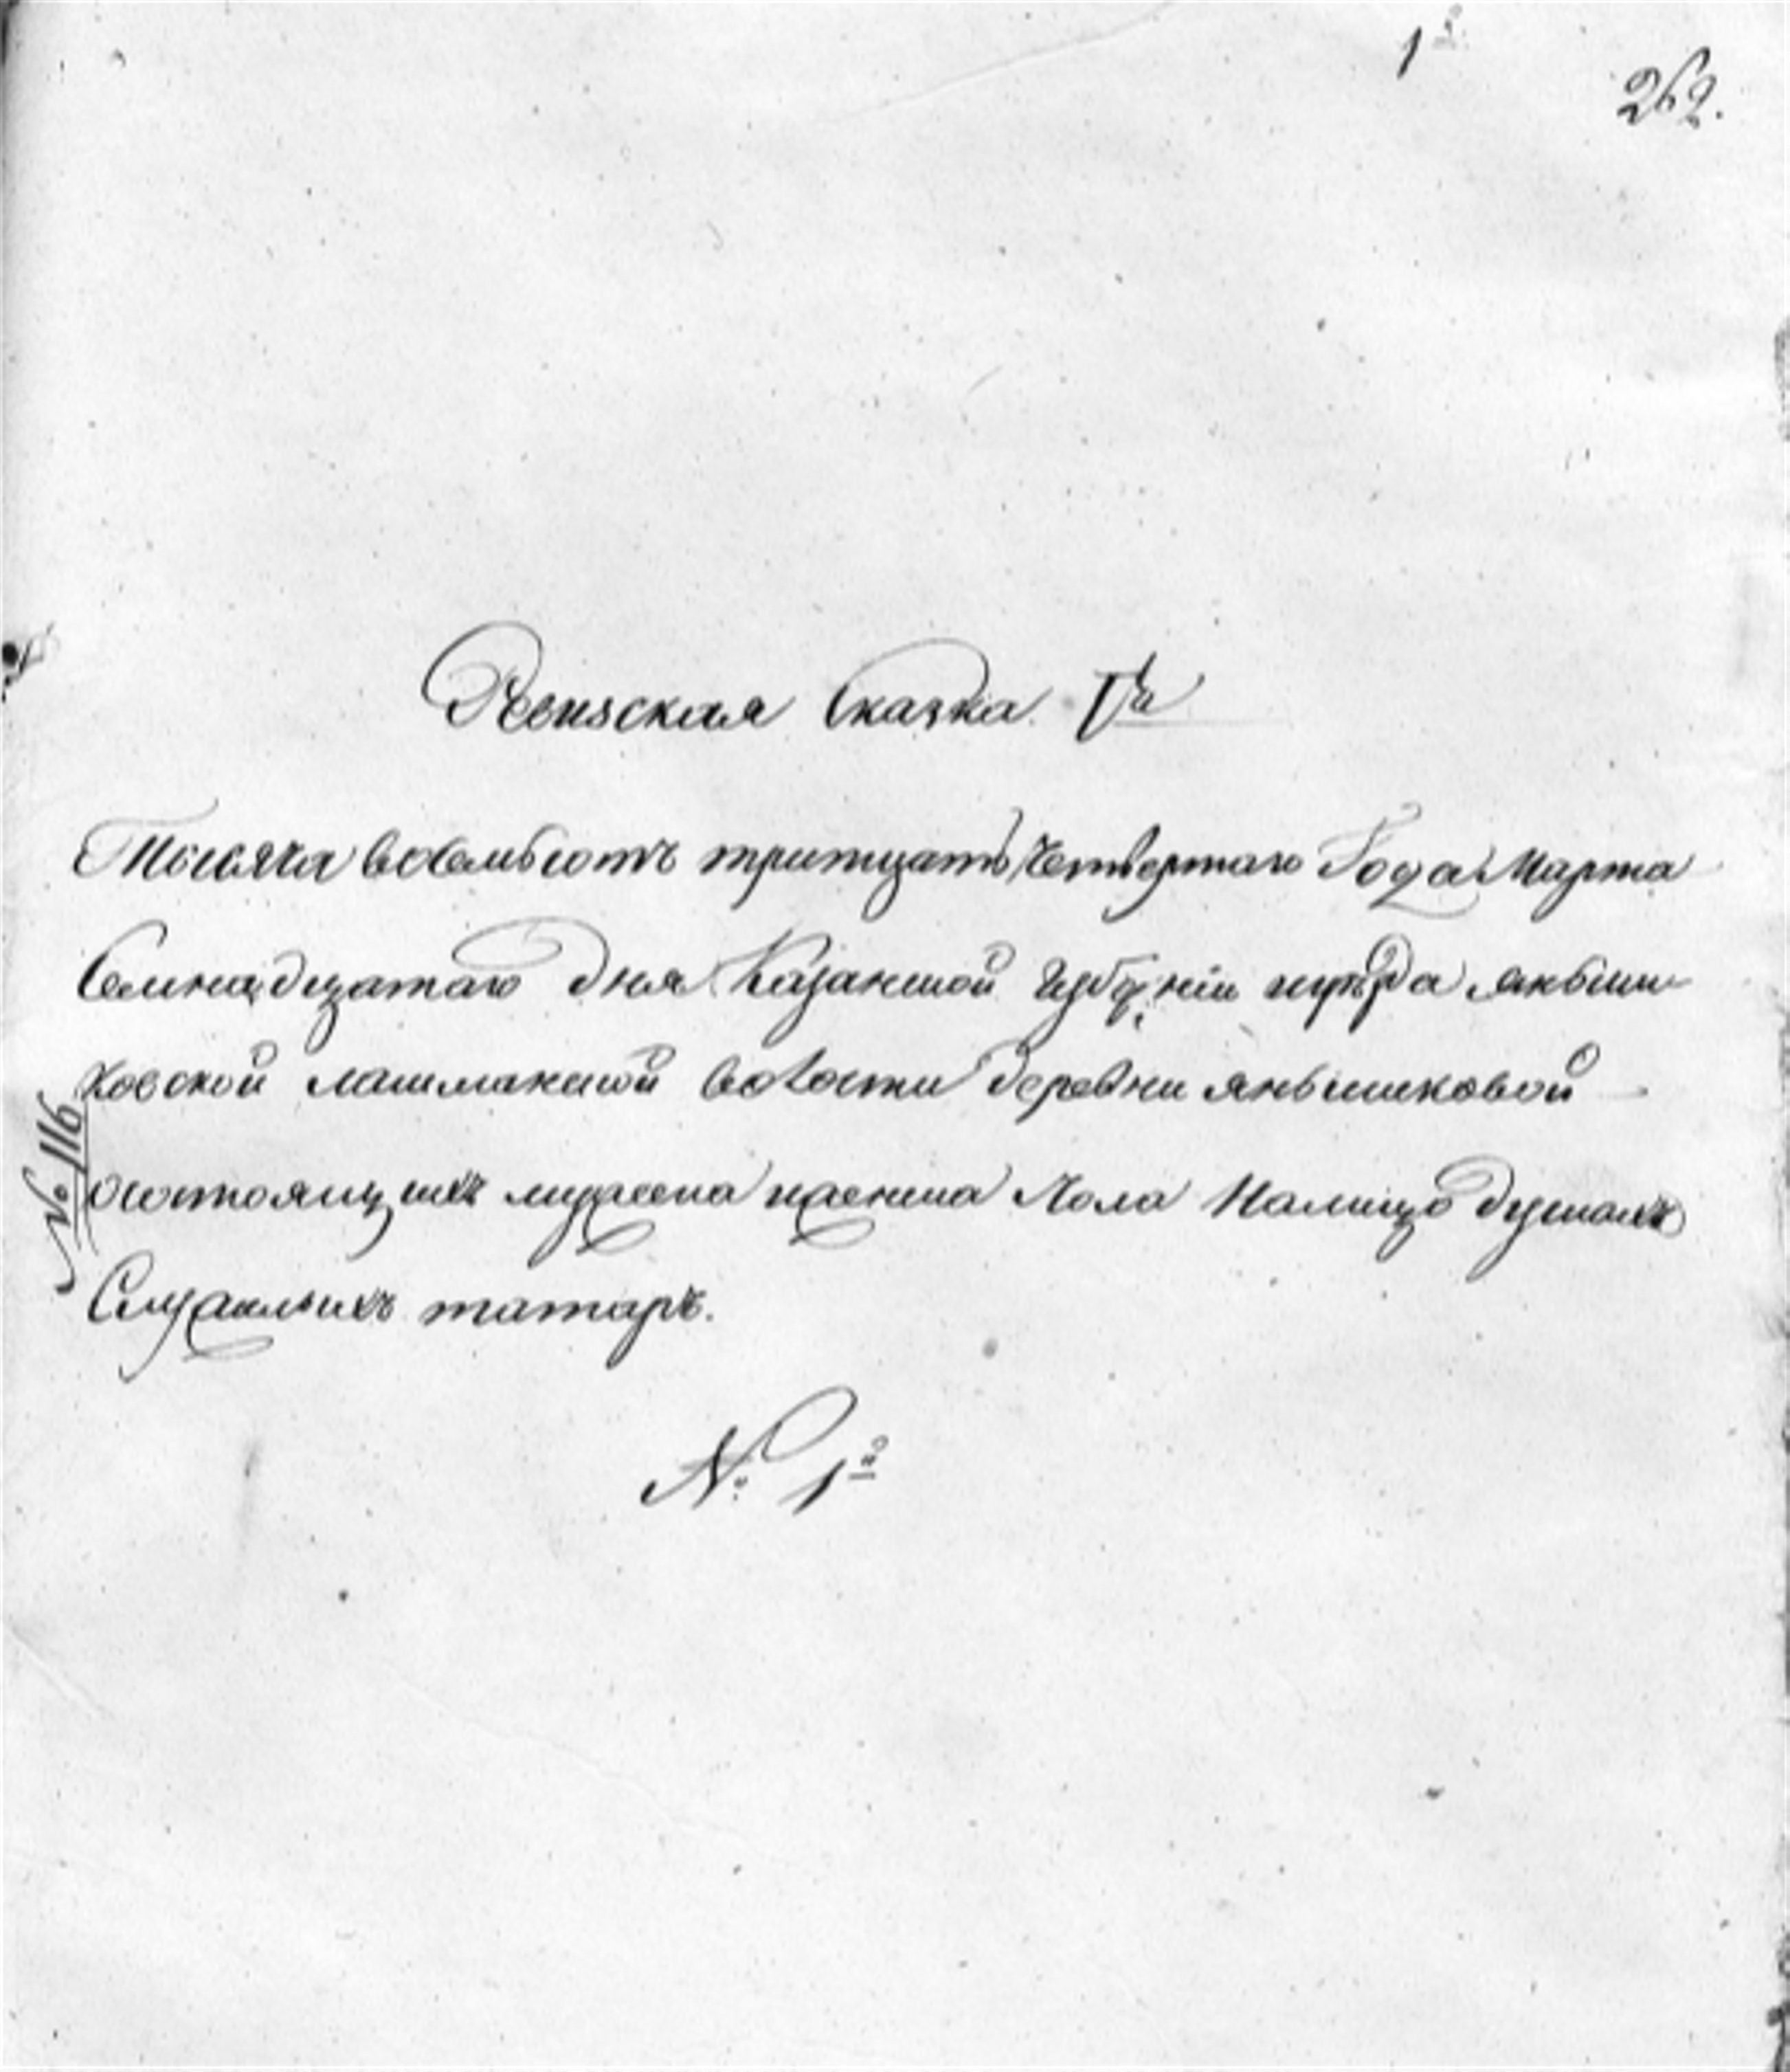 1й
262.
Ревизская Сказка
Тысяча восемьсотъ тритцать Четвертаго Года Марта
Семнадцатаго дня Казанской губерніи уѣзда яныши
ковской лашманской волости деревни янышиковой
осостоящихъ мужеска иженска пола Налицо душахъ
Служилыхъ татаръ.
№ 116
№ 1й